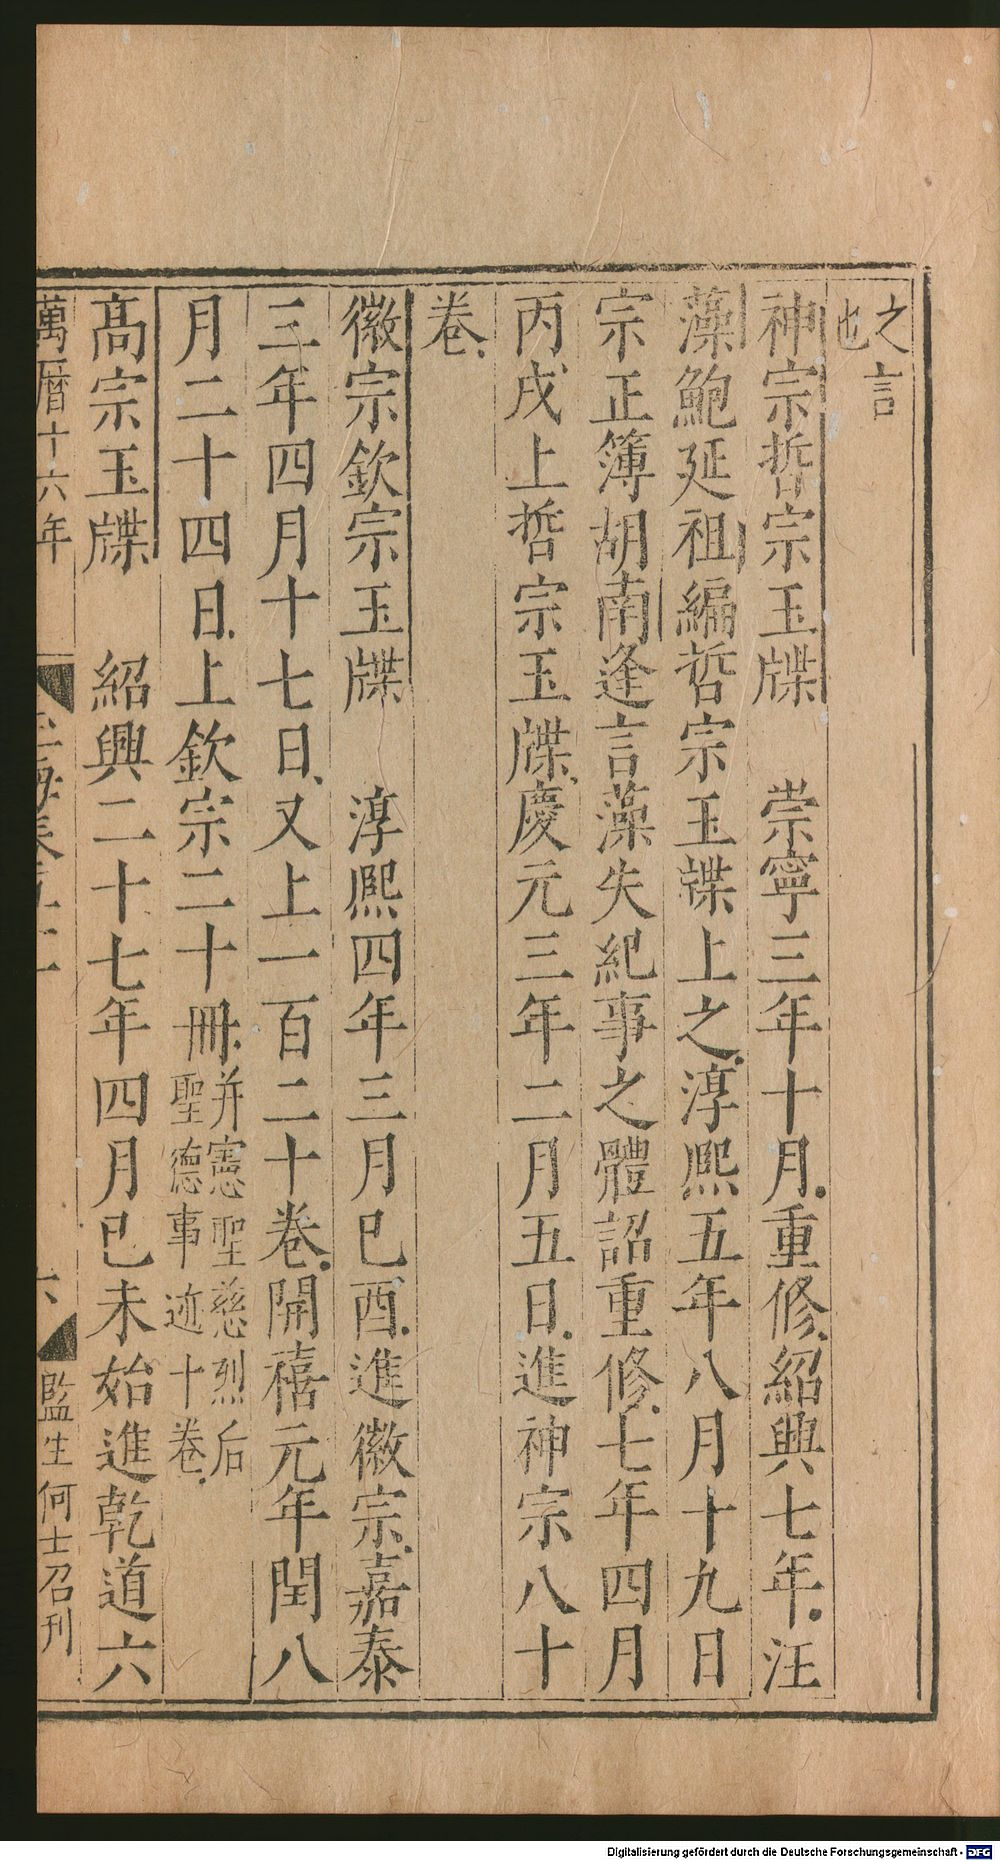 之言
也
神宗哲宗玉牒　崇寧三年十月重修紹興七年汪
藻鮑延祖編哲宗玉諜上之淳熙五年八月十九日
宗正簿胡南逢言藻失紀事之體詔重修七年四月
丙戌上哲宗玉牒慶元三年二月五日進神宗八十
卷
徽宗欽宗玉牒　淳熙四年三月己酉進徽宗嘉泰
三年四月十七日又上一百二十卷開禧元年閏八
月二十四日上欽宗二十冊并憲聖慈烈后
聖德事迹十卷
高宗玉牒　紹興二十七年四月已未始進乾道六
萬曆十六年
六
監生何士召刋
Digitalisierung gefördert durch die Deutsche Forschungsgemeinschaft - DFG